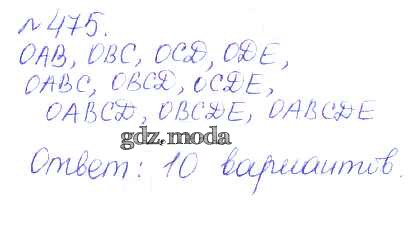 №475.
OAB, OBC, OCD, ODE,
OABC, OBCD, OCDE,
OABCD, OBCDE, OABCDE
gdz.moda
Ответ: 10 вариантов.